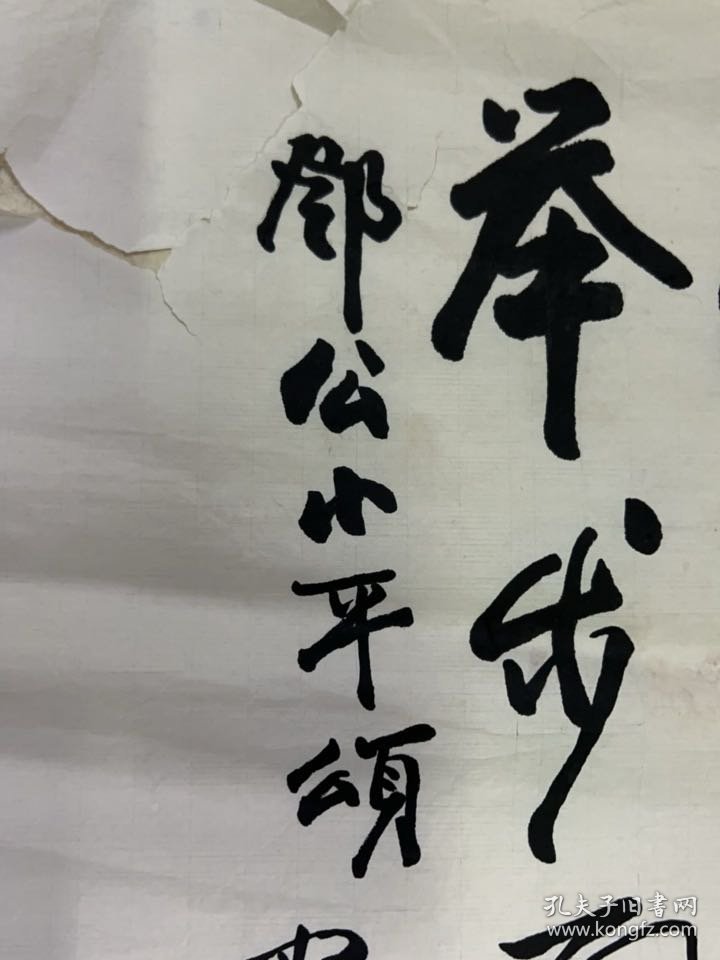 举步
鄧公小平頌
孔夫子旧書网
www.kongfz.com